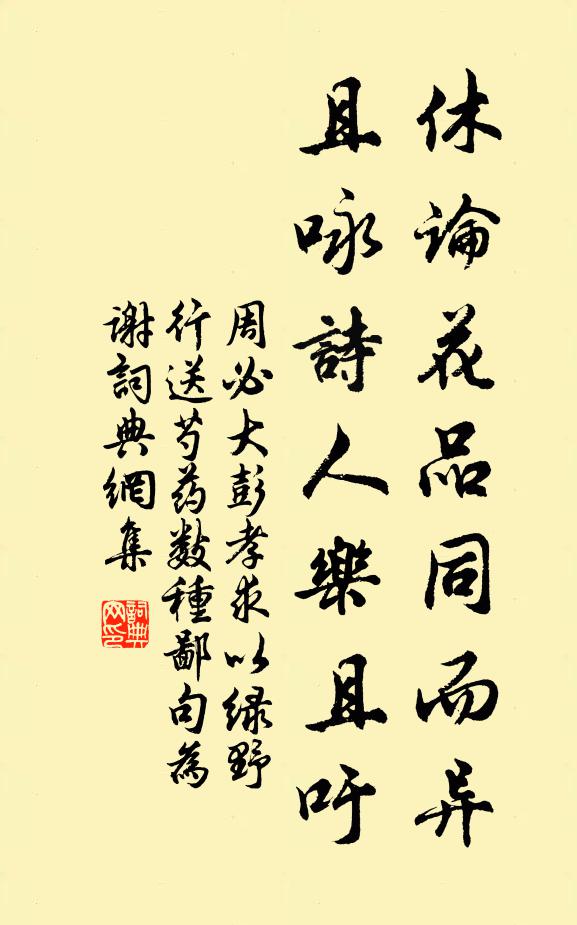 休論花品同而异
且咏詩人樂且吁
周必大彭孝求以緑野
行送芍药数種鄙句為
謝詞典網集
詞典网印